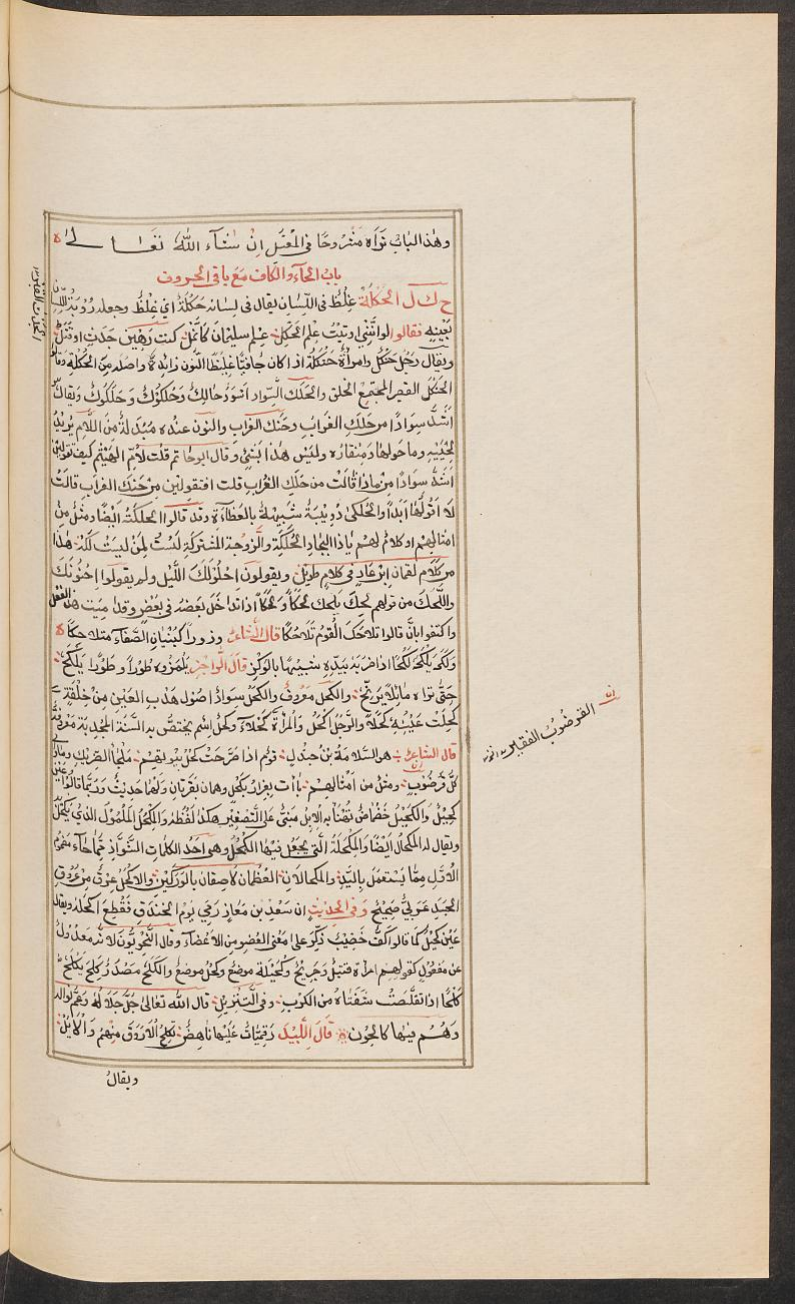 وهذا الباب تراه مشروحا في المعتل ان شآء الله تعالى ه
باب الحاء والكاف مع باقي الحروف
ح ك ل الحُكلَة غِلَظ في اللّسان يقال في لسانه حُكلَة اي غِلَظ وجعله رُؤبة اللسان
بعينه فقال لو انّني اوتيت علم الحُكلِ علم سليمان كلام النمل كنت رهين جَدَث او قتل
ويقال رجل حَنكَل وامرأة حَنكَلة اذا كان جافيًا غليظا النون زايدة واصله من الحكلة وقالوا
الحَنكَل القصير المجتمع الخلق والحَلَك السواد اسْوَدُ حالك وحُلكُوك وحَلَكُوك ويقال
اشدّ سوادًا من حَلَك الغراب وحَنَك الغراب والنون عنده مبدلة من اللّام يريد
لحييه وما حولها ومنقاره وليس هذا بشئ وقال ابو حاتم قلت لأمّ الهيثم كيف تقولين
اشدّ سوادًا من ماذا قالت من حَلَك الغراب قلت افتقولين من حَنَك الغراب قالت
لا اقولها ابدا والحُلَكَى دُوَيبة شبيهة بالعَظآءة وقد قالوا الحُلَكَة ايضا ومثل من
امثالهم او كلام لهم ياذا البجاد الحُلَكَة والزوجة المشتركة لستْ لمن ليست لَكَهْ هذا
من كلام لقمان ابن عاد في كلام طويل ويقولون احْلَوْلَكَ الليل ولم يقولوا احْنَوْنَكَ
واللّحك من قولهم لحِك يلحك لحكًا ولحكًا اذا تداخل بعضه في بعض وقد اميت هذا الفعل
واكتفوا بان قالوا تلاحك القوم تلاحُكًا قال الشاعر وزورا كبنيان الصّفآء متلاحكا ه
ولكَحَهُ يلكَحه لكحًا اذا ضربه بيده شبيها بالوكز قال الرّاجز يلهزه طورًا وطورًا يلكح
حتى تراه مائلا يرنّح والكحل معروف والكَحَل سواد اصول هدب العين من خلقة
كحِلت عينه كحَلًا والرجل اكحل والمرأة كحلاء وكحل اسم يختص به السنة المجدبة معروفة
قال الشاعر هو السلامة بن جندل قوم اذا صرّحت كحل بيوتهم ملجأ الضّريك ومأوى
كلّ قرضوب ومثل من امثالهم باءت عرار بكحل وهما بقرتان ولهما حديث وربّما قالوا عين
كحيل والكحيل خضخاض تُهنأ به الابل مبنيّ على التصغير هكذا لفظه والمِكحل المُلمُول الذي يكحل
ويقال له المكحال ايضا والمكحلة التي يجعل فيها الكحل وهي احد الكلمات الشواذ مما جاء مضموم
الاوّل مما يستعمل باليد والمكحالان العظمان لاصقان بالوركين والاكحل عرق من عروق
الجسد عربيّ صحيح وفي الحديث ان سعد بن معاذ رُمي يوم الخندق فقطع اكحله ويقال
عين كحيل كما قالوا كفّ خضيب ذكّر على معنى العضو من الاعضآء وقال النحويّون لانه معدول
عن مفعول كقولهم امرأة قتيل وجريح وكُحَيلة موضع وكُحل موضع والكَلْح مصدر كلح يكلح
كلحًا اذا تقلّصت شفتاه من الكرب وفي التنزيل قال الله تعالى جلّ جلاله وعمّ نواله
وهم فيها كالحون قال اللبيد رَقَمِيّات عليها ناهض تكلح الاروق منهم والأيل
ويقال
القرضوب الفقير